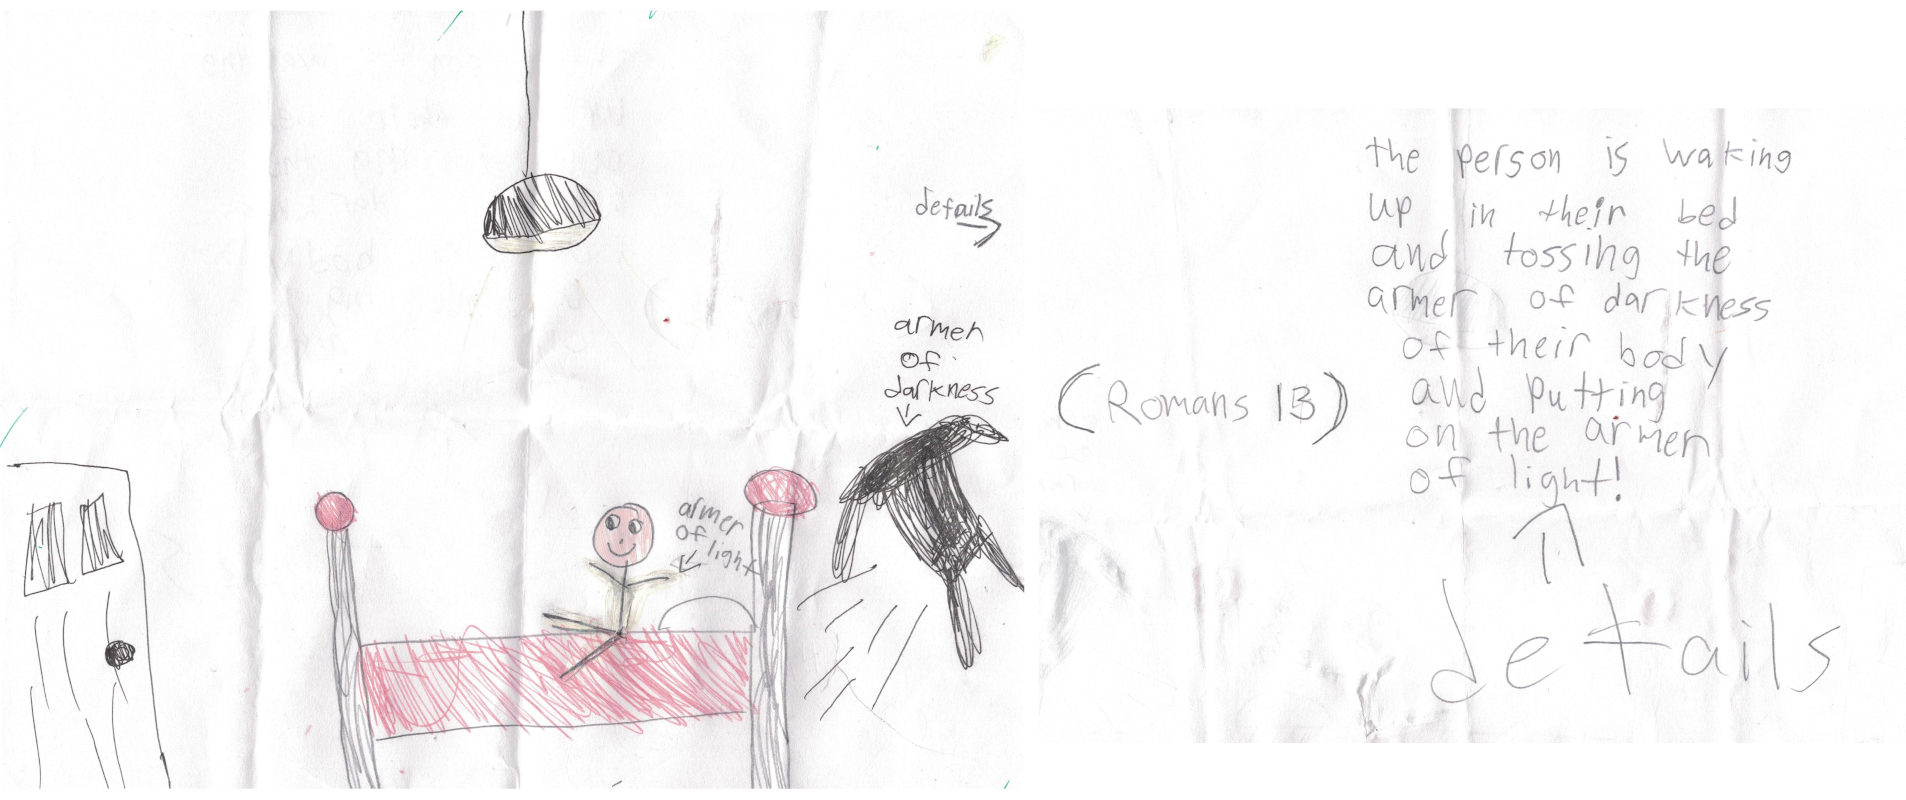 details
armen
of
darkness
armer
of
light
(Romans 13)
the person is waking
up in their bed
and tossing the
armer of darkness
of their body
and putting
on the armer
of light!
details